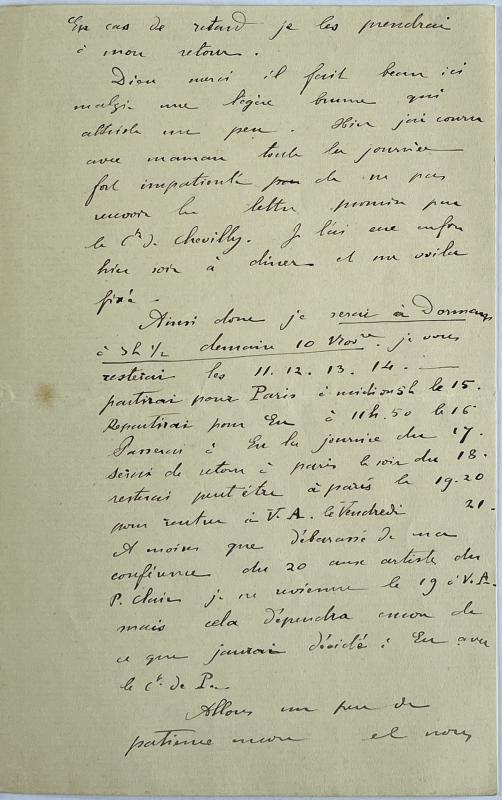 En cas de retard je les prendrai
à mon retour.
Dieu merci il fait beau ici
malgré une légère brume qui
attriste un peu. Hier j'ai couru
avec maman toute la journée
fort impatienté de ne pas
recevoir la lettre promise par
le Cte de Chevilly. Je l'ai eue enfin
hier soir à dîner et me voila
fixé.
Ainsi donc je serai à Dormans
à 5h 1/2 demain 10 9bre je vous
resterai les 11. 12. 13. 14. —
partirai pour Paris à midi ou 5h le 15.
Repartirai pour Eu à 11h.50 le 16
Passerai à Eu la journée du 17.
Serai de retour à paris le soir du 18.
resterai peut être à paris le 19.20
pour rentrer à V.A. le Vendredi 21.
A moins que débarassé de ma
conférence du 20 aux artistes du
P. Clair je ne revienne le 19 à V.A.
mais cela dépendra encore de
ce que j'aurai décidé à Eu avec
le Cte de P.
Allons un peu de
patience encore et nous